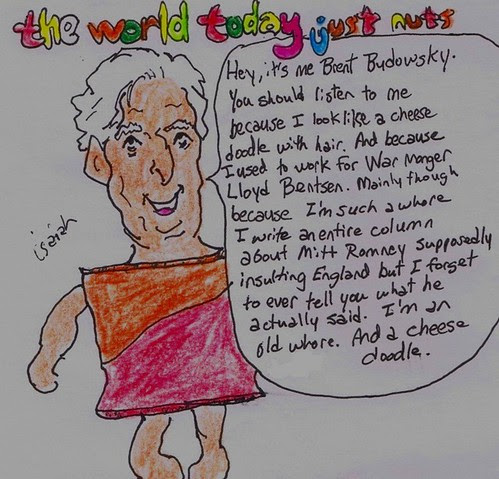 the world today just nuts
Hey, it's me Brent Budowsky.
You should listen to me
because I look like a cheese
doodle with hair. And because
I used to work for War Monger
Lloyd Bentsen. Mainly though
because I'm such a whore
I write an entire column
about Mitt Romney supposedly
insulting England but I forget
to ever tell you what he
actually said. I'm an
old whore. And a cheese
doodle.
isaiah